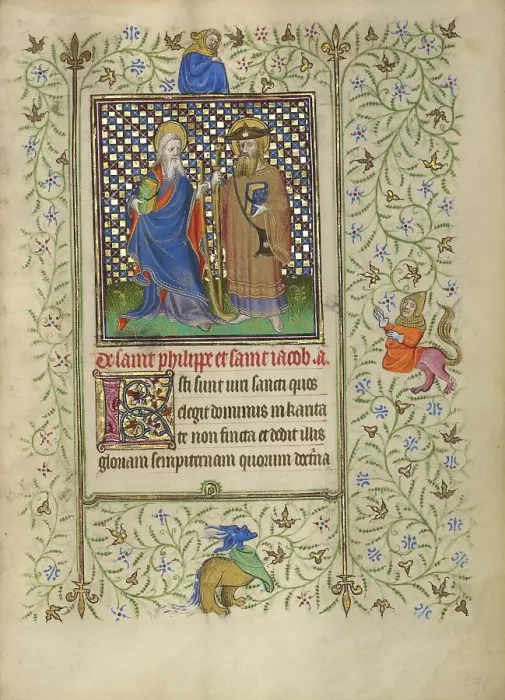 De saint philippe et saint iacob. a.
Isti sunt uiri sancti quos
elegit dominus in karita
te non fincta et dedit illis
gloriam sempiternam quorum doctrina